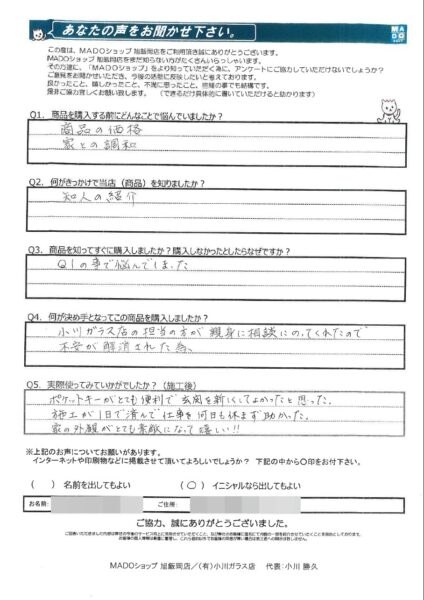 あなたの声をお聞かせ下さい。
MADO
この度は、MADOショップ 旭飯岡店をご利用頂き誠にありがとうございます。
MADOショップ 旭飯岡店をまだ知らない方がたくさんいらっしゃいます。
その方達に、「MADOショップ」をより知っていただく為に、アンケートにご協力していただけないでしょうか？
ご意見をお聞かせいただき、今後の活動に反映したいと考えております。
良かったこと、嬉しかったこと、不満に思ったこと、些細の事でも結構です。
是非ご協力宜しくお願い致します。（できるだけ具体的に書いていただけると助かります）
Q1．商品を購入する前にどんなことで悩んでいましたか？
商品の価格
家との調和
Q2．何がきっかけで当店（商品）を知りましたか？
知人の紹介
Q3．商品を知ってすぐに購入しましたか？購入しなかったとしたらなぜですか？
Q1の事で悩んでしまった
Q4．何が決め手となってこの商品を購入しましたか？
小川ガラス店の担当の方が親身に相談にのってくれたので
不安が解消された為。
Q5．実際使ってみていかがでしたか？（施工後）
ポケットキーがとても便利で玄関を新しくしてよかったと思った。
施工が1日で済んで仕事を何日も休まず助かった。
家の外観がとても素敵になって嬉しい!!
※上記のお声についてお願いがあります。
インターネットや印刷物などに掲載させて頂いてよろしいでしょうか？ 下記の中から〇印をお付下さい。
（　）名前を出してもよい （〇）イニシャルなら出してもよい
お名前: ご住所:
ご協力、誠にありがとうございました。
MADOショップ 旭飯岡店／(有)小川ガラス店 代表:小川 勝久